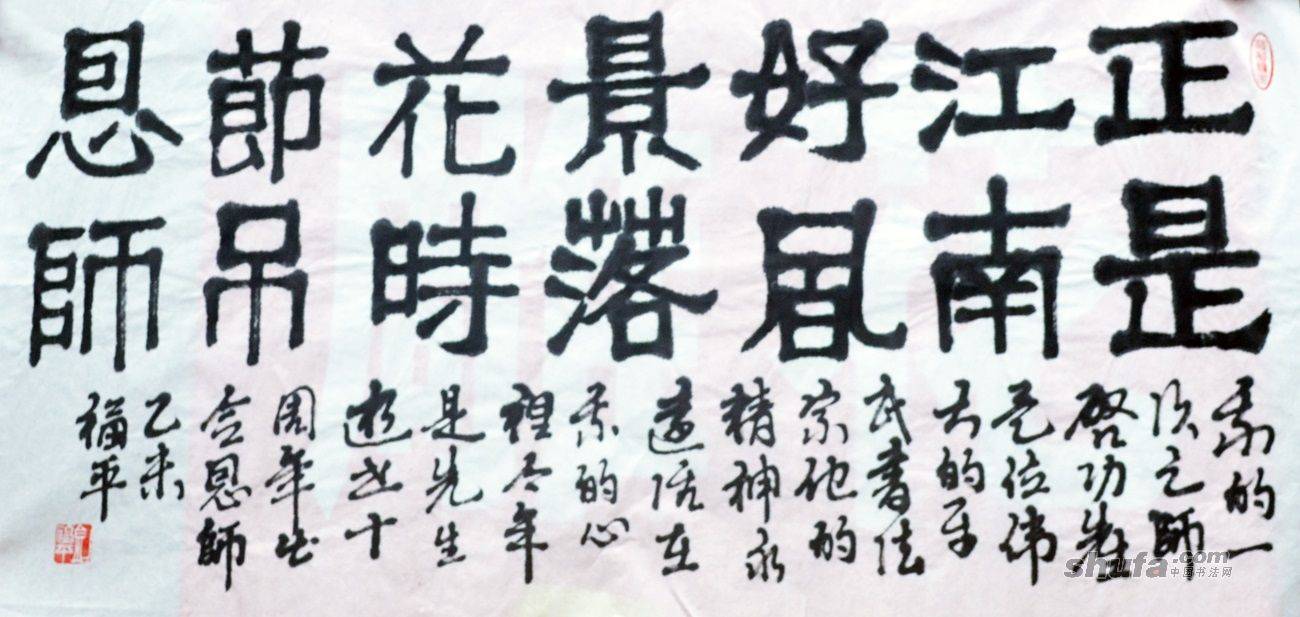 正是
江南
好風
景落
花時
節吊
恩師
我的一
之師
啓功
位伟
大的平
民書法
家他的
精神永
遠活在
我的心
裡今年
是先生
逝世十
周年
念恩師
乙未
福平
shufa.com
中国书法网